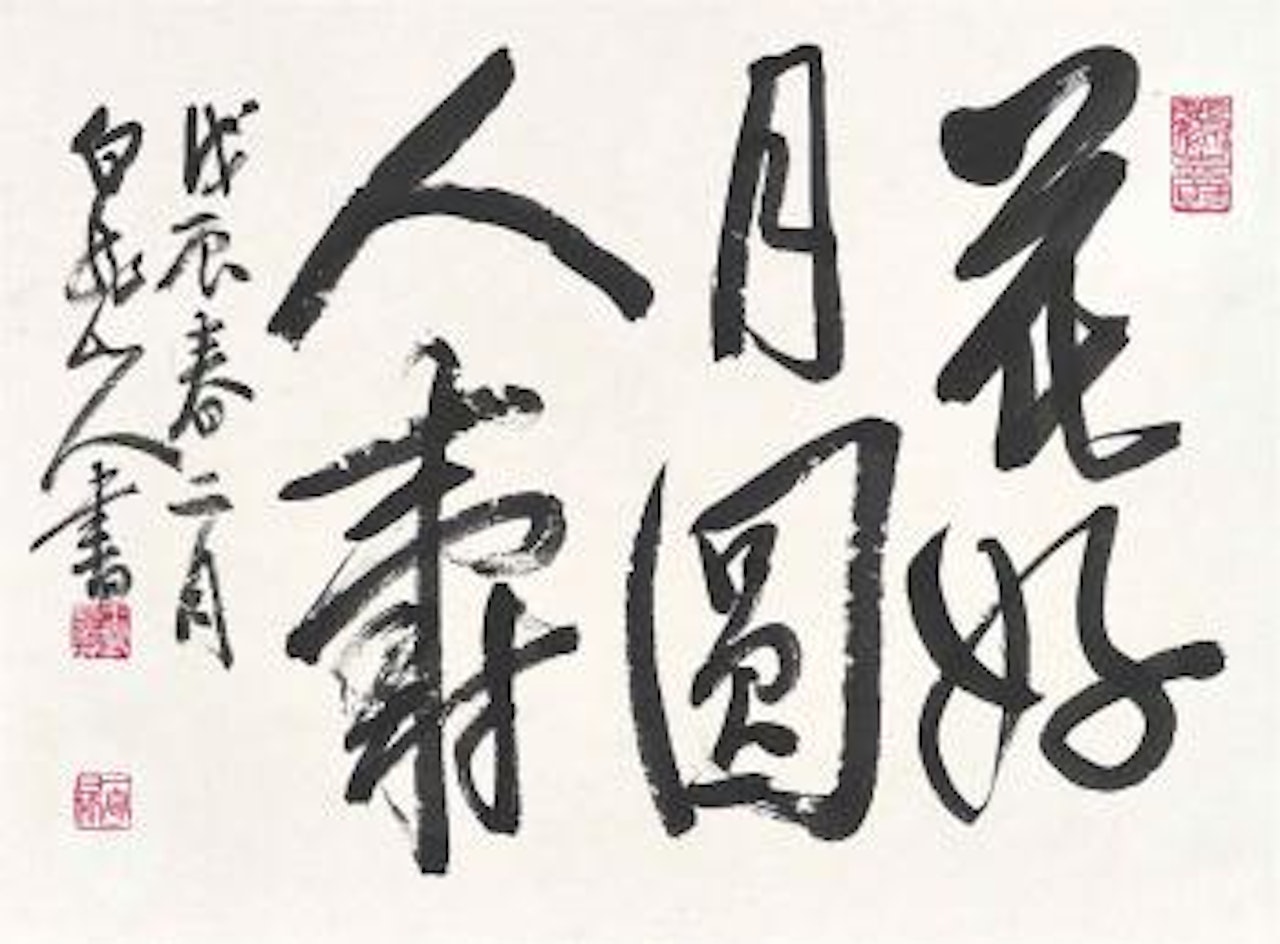 花好
月圓
人壽
戊辰春二月
白龙山人書